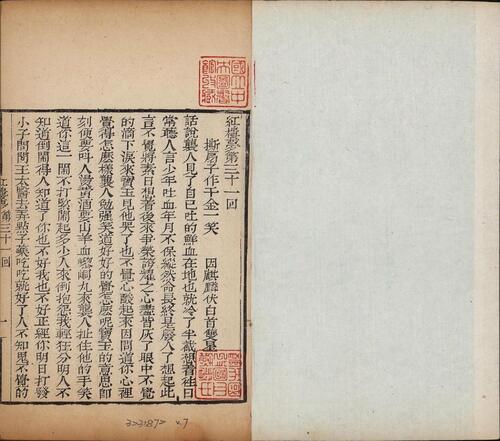 紅樓夢第三十一回
撕扇子作千金一笑 因麒麟伏白首雙星
話說襲人見了自已吐的鮮血在地也就冷了半截想着往日
常聽人言少年吐血年月不保縱然命長終是廢人了想起此
言不覺將素日想着後來爭榮誇耀之心盡皆灰了眼中不覺
的滴下淚來寶玉見他哭了也不覺心酸起來因問道你心裡
覺得怎麼樣襲人勉强笑道好好的覺怎麼呢寶玉的意思即
刻便要叫人燙黃酒要山羊血嶑峒丸來襲人拉住他的手笑
道你這一鬧不打緊鬧起多少人來倒抱怨我輕狂分明人不
知道倒鬧得人知道了你也不好我也不好正經你明日打發
小子問問王太醫去弄點子藥吃吃就好了人不知鬼不覺的
紅樓夢 第三十一回 一
323187 v.7